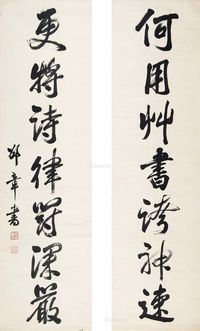 何用艸書誇神速
更將詩律鬪深嚴
邦章書